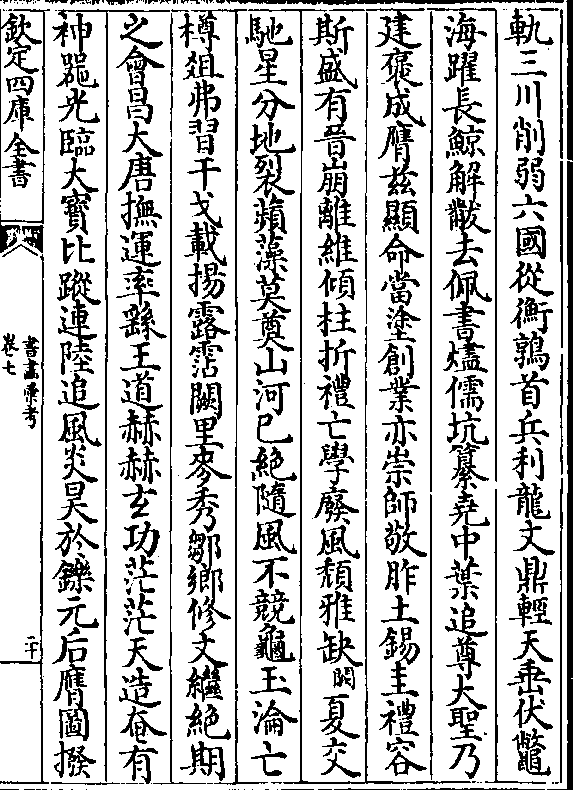 軌三川削弱六國從衡鶉首兵利龍文鼎輕天垂伏鼈
海躍長鯨解黻去佩書燼儒坑纂堯中葉追尊大聖乃
建褒成膺茲顯命當塗創業亦崇師敬胙土錫圭禮容
斯盛有晉崩離維傾柱折禮亡學廢風頽雅缺闕夏交
馳星分地裂蘋藻莫奠山河已絶隨風不競龜玉淪亡
樽俎弗習干戈載揚露霑闕里麥秀鄒鄉修文繼絶期
之會昌大唐撫運率繇王道赫赫玄功茫茫天造奄有
神器光臨大寶比蹤連陸追風炎昊於鑠元后膺圖撥
欽定四庫全書
書畫彙考
卷七
二十